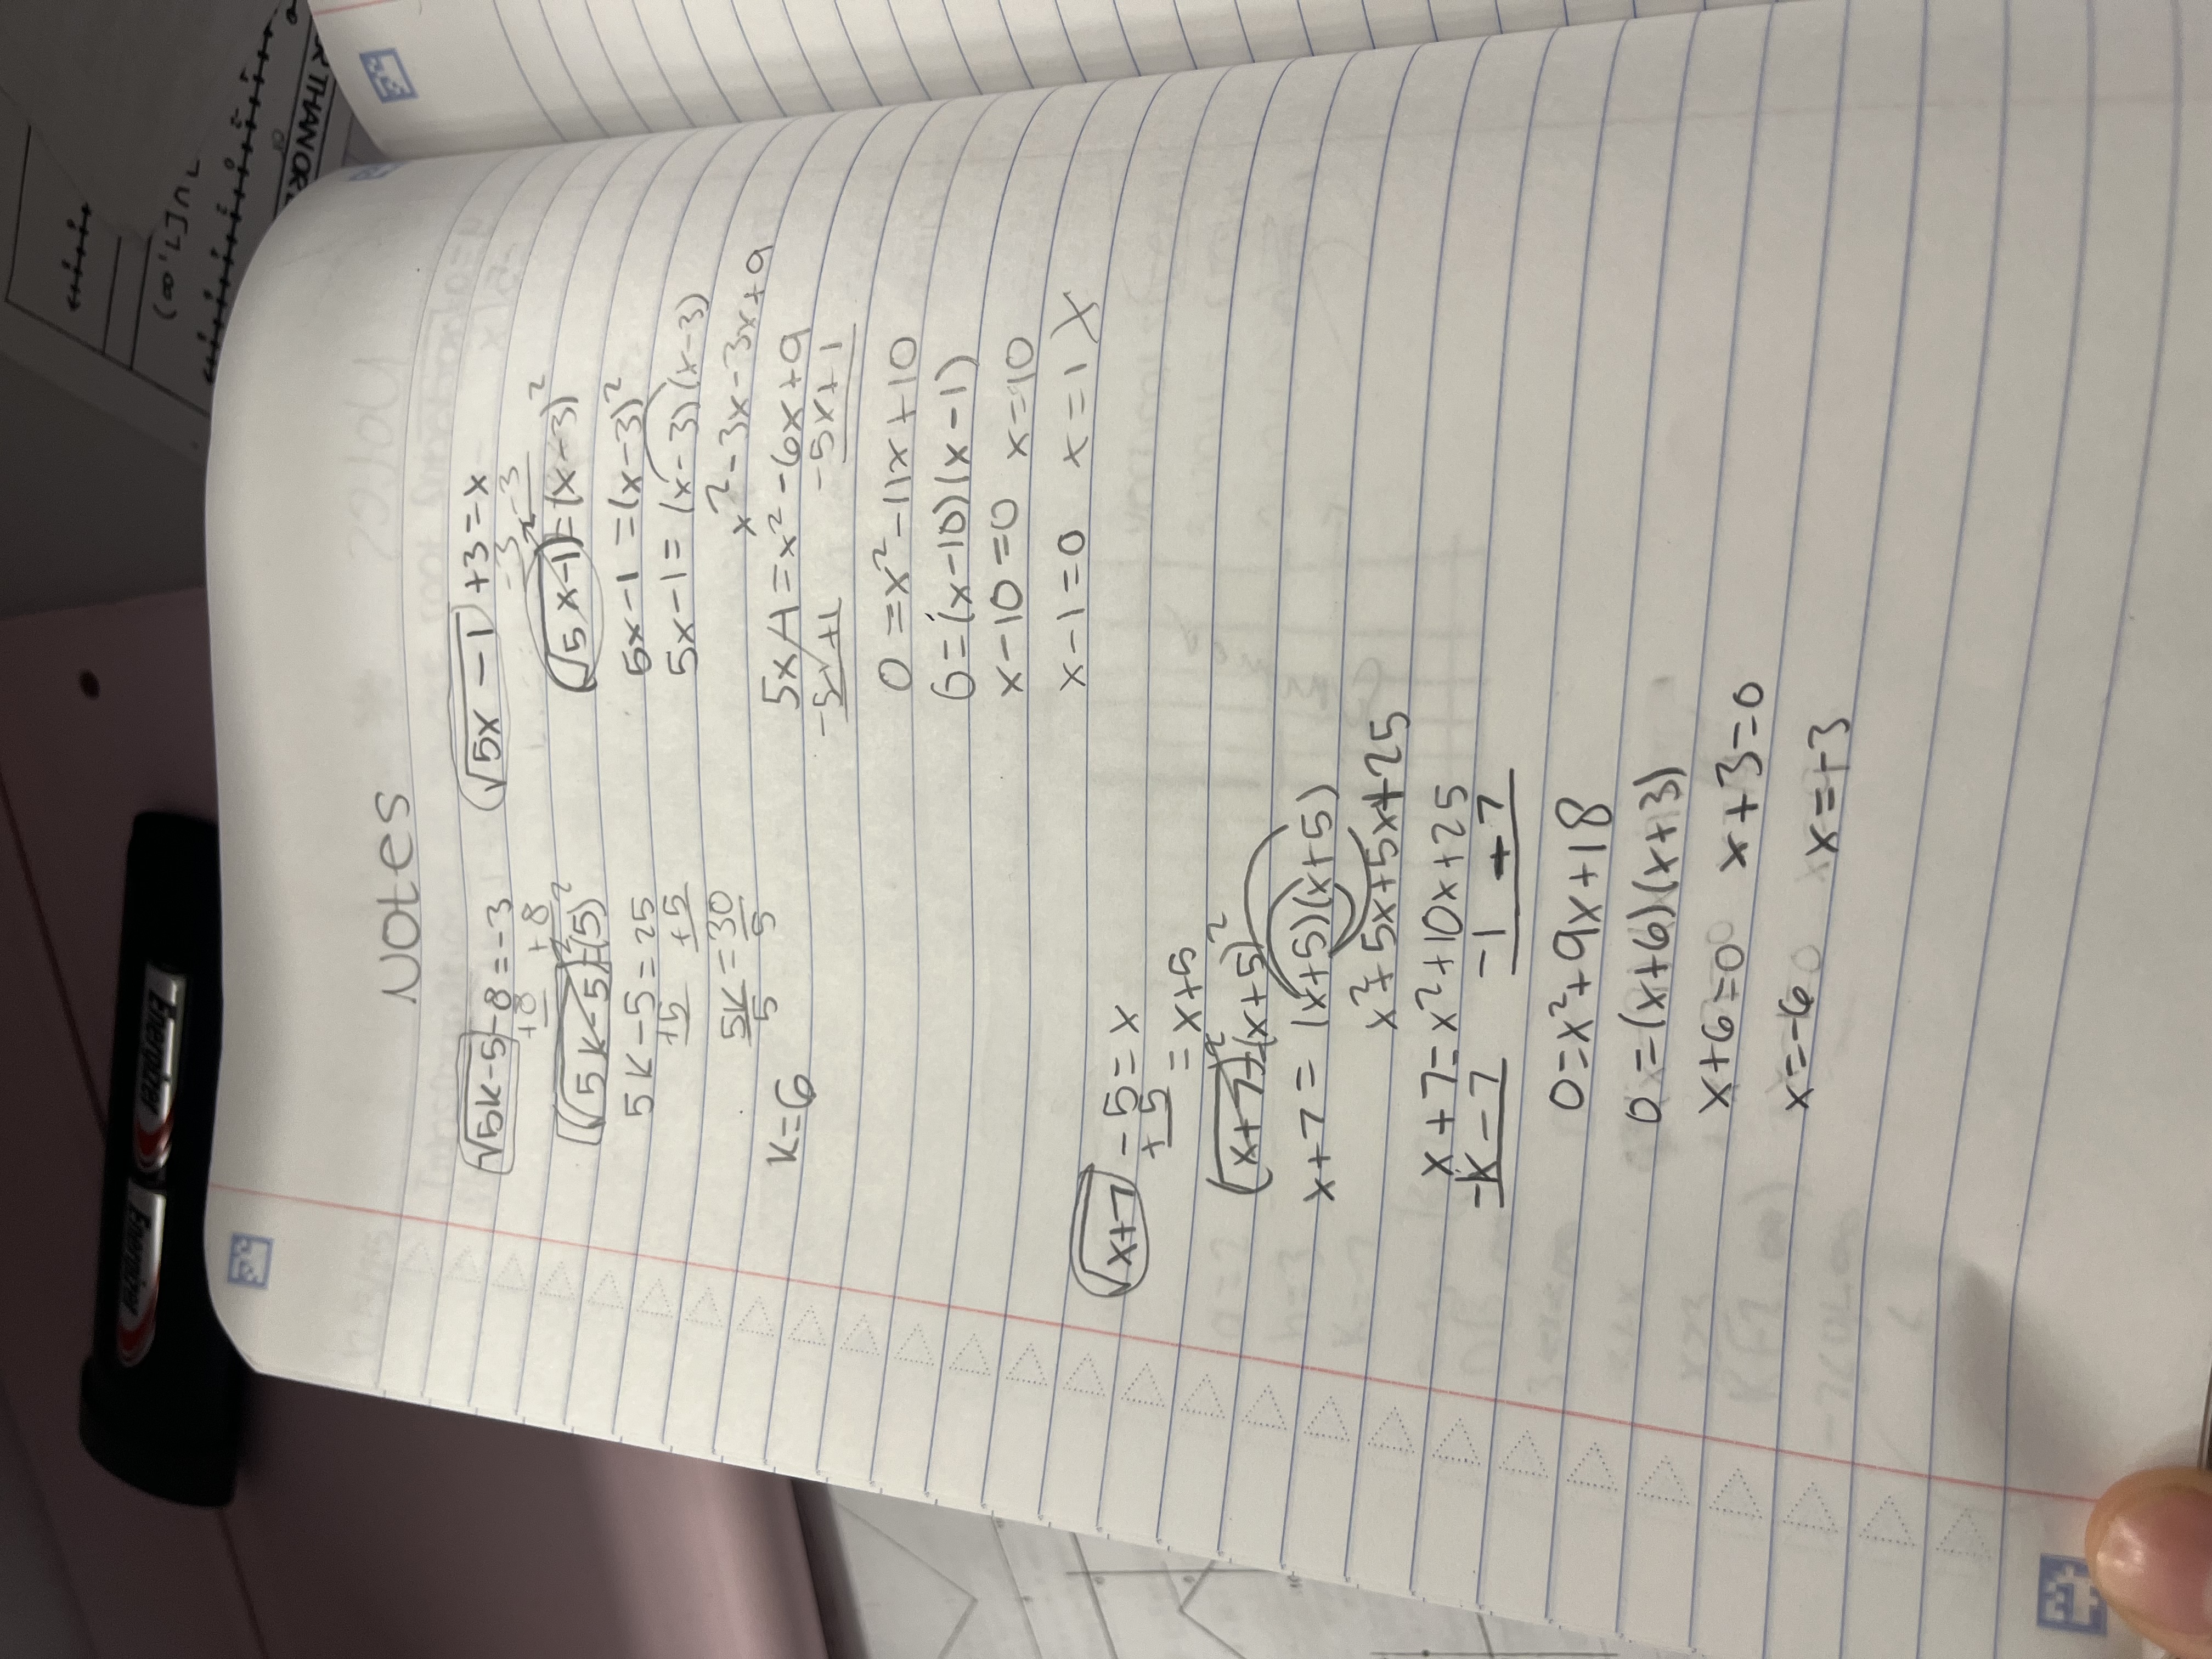 Notes
√5k-5 -8=-3
+8 +8
(√5k-5)²=(5)²
5k-5=25
+5 +5
5k=30
5 5
k=6
√5x-1 +3=x
-3 -3
(√5x-1)²=(x-3)²
5x-1=(x-3)²
5x-1=(x-3)(x-3)
x²-3x-3x+9
5x-1=x²-6x+9
-5x+1 -5x+1
0=x²-11x+10
0=(x-10)(x-1)
x-10=0 x=10
x-1=0 x=1 X
√x+7 -5=x
+5 =x+5
(√x+7)²=(x+5)²
x+7=(x+5)(x+5)
x²+5x+5x+25
x+7=x²+10x+25
-x-7 -1 -7
0=x²+9x+18
0=(x+6)(x+3)
x+6=0 x+3=0
x=-6 x=-3
Energizer
Energizer